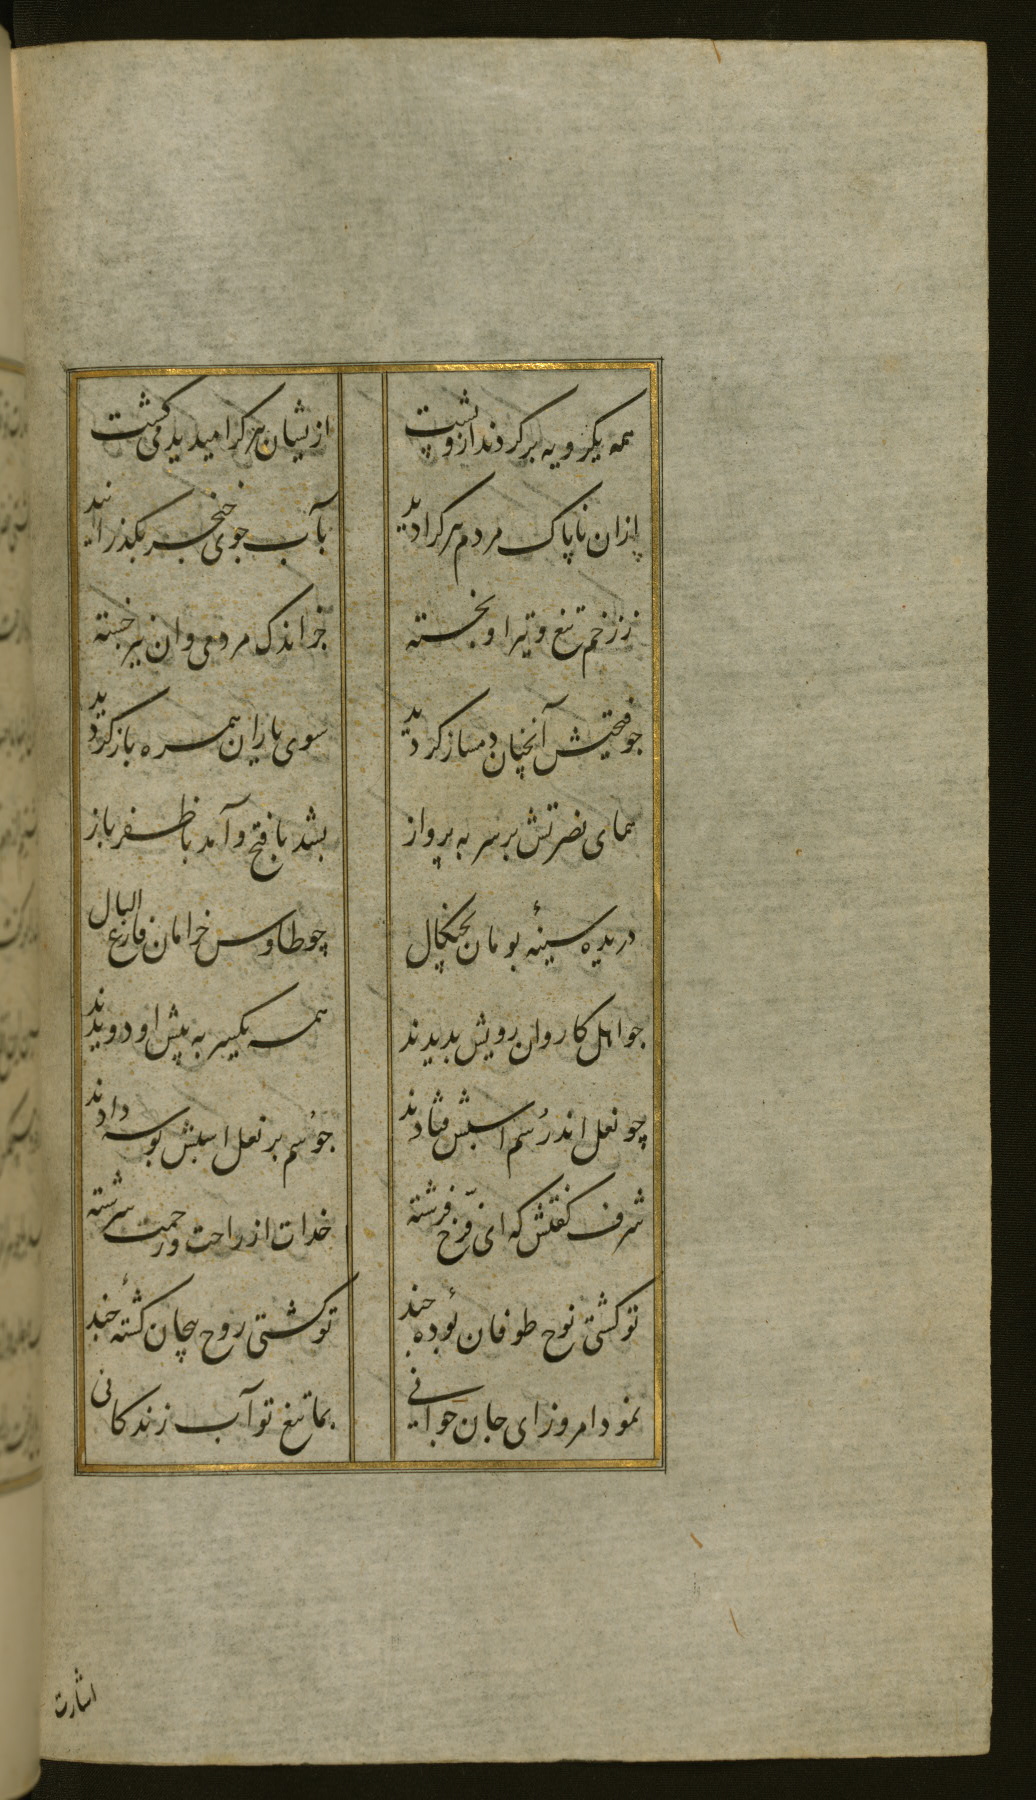 همه یکرویه برکردند ازو پشت
ازیشان هر کرا میدید می‌کشت
ازان ناپاک مردم هر کرا دید
بآب جوی خنجر بگذرانید
ززخم تیغ و تیر او نجسته
جز اندک مردمی وان نیز خسته
جو فتحیش آنچنان دمساز کردید
سوی یاران همره باز کردید
همای نصرتش بر سر به پرواز
بشد با فتح و آمد با ظفر باز
دریده سینهٔ بومان بچنکال
چو طاوس خرامان فارغ البال
جو اهل کاروان رویش بدیدند
همه یکسر به پیش او دویدند
چو نعل اندر سُم اسبش فتادند
جو سُم بر نعل اسبش بوسه دادند
شرف کفتش که ای فرّخ فرشته
خدات از راحت و رحمت سرشته
تو کشتی نوح طوفان بودهٔ جند
تو کشتی روح بیجان کشتهٔ جند
نمود امروز ای جان جوانی
بما تیغ تو آب زندکانی
اشارت